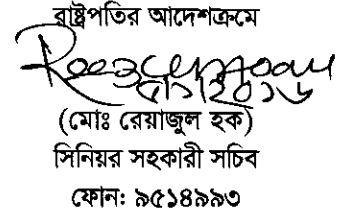 রাষ্ট্রপতির আদেশক্রমে
(মোঃ রেয়াজুল হক)
সিনিয়র সহকারী সচিব
ফোন: ৯৫১৪৯৯৩